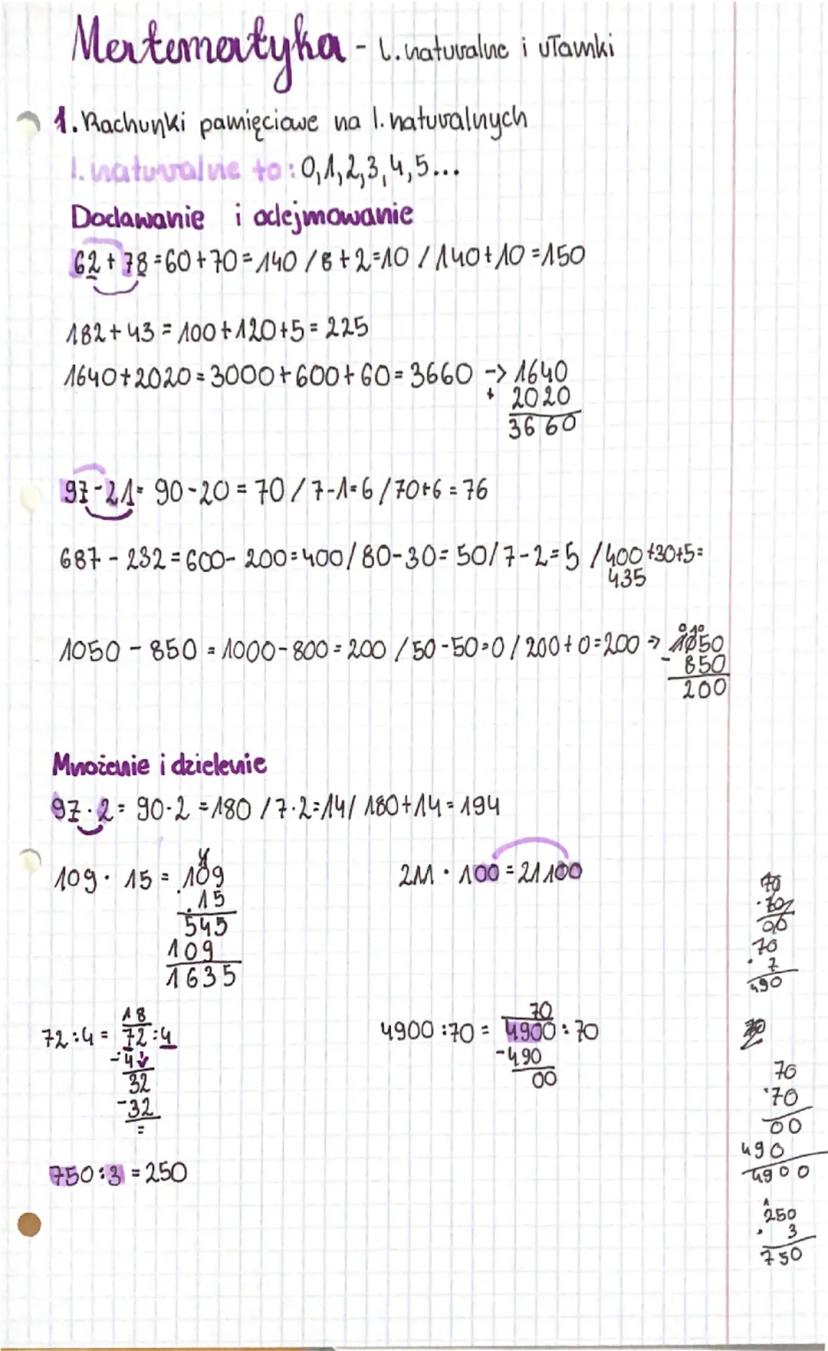 Matematyka - l. naturalne i ułamki
1. Rachunki pamięciowe na l. naturalnych
l. naturalne to: 0,1,2,3,4,5...
Dodawanie i odejmowanie
62+78=60+70=140 / 8+2=10 / 140+10=150
182+43=100+120+5=225
1640+2020=3000+600+60=3660 -> 1640
+ 2020
3660
97-21= 90-20=70 / 7-1=6 / 70+6=76
687-232=600-200=400 / 80-30=50 / 7-2=5 / 400+30+5=
435
1050-850=1000-800=200 / 50-50=0 / 200+0=200 -> 1050
- 850
200
Mnożenie i dzielenie
97·2= 90·2=180 / 7·2=14 / 180+14=194
109·15= 109
·15
545
109
1635
211·100=21100
18
72:4= 72:4
-4
32
-32
=
70
4900:70= 4900:70
-490
00
750:3=250
70
·7
490
70
·70
00
490
4900
250
· 3
750